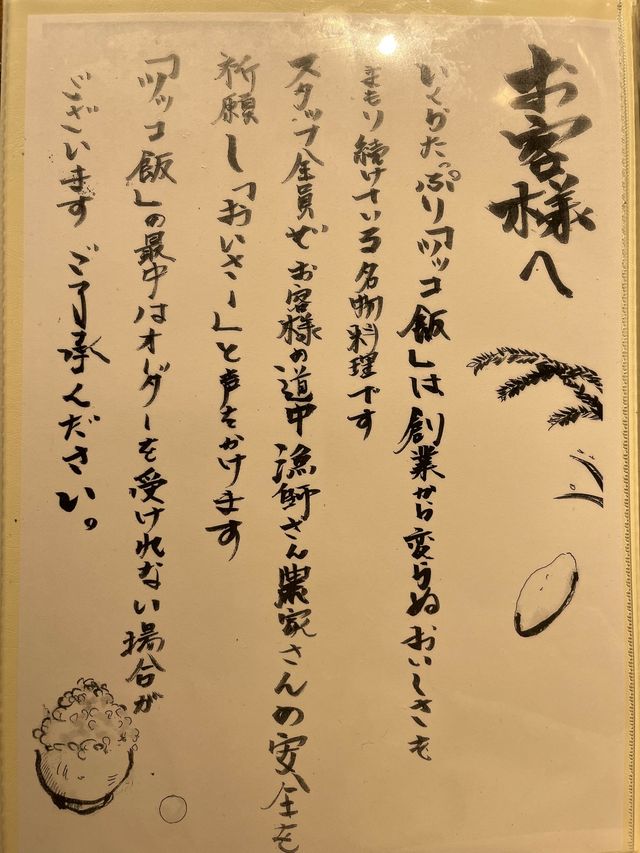 お客様へ
いくらたっぷり「ツッコ飯」は創業から変らぬおいしさを
まもり続けている名物料理です
スタッフ全員でお客様の道中漁師さん農家さんの安全を
祈願し「おいさー」と声をかけます
「ツッコ飯」の最中はオーダーを受けれない場合が
ございますご了承ください。